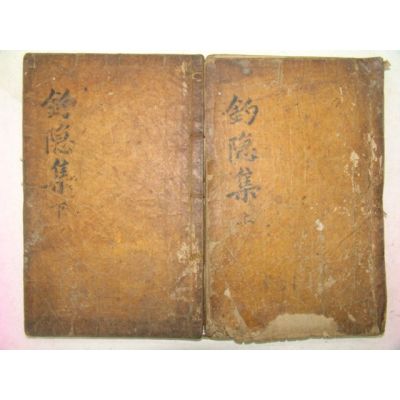 釣隱集 上
釣隱集 下